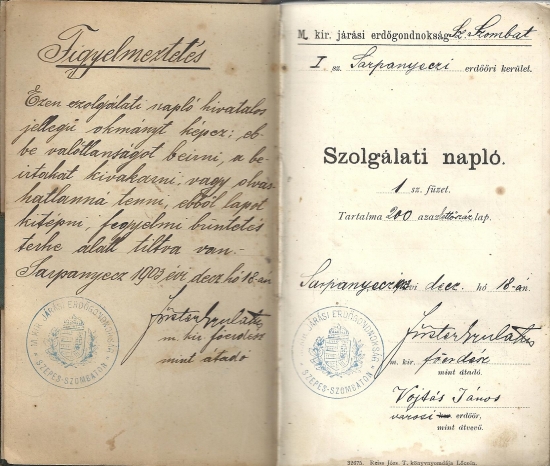 Figyelmeztetés
Ezen szolgálati napló hivatalos
jellegű okmányt képez; eb-
be valótlanságot beirni, a be-
irtakat kivakarni, vagy olvas-
hatlanná tenni, ebből lapot
kitépni, fegyelmi büntetés
terhe alatt tiltva van-
Sarpanyecz 1903 évi decz hó 18-án.
m. kir főerdész
mint átadó
M. KIR. JÁRÁSI ERDŐGONDNOKSÁG
SZEPES-SZOMBATON
M. kir. járási erdőgondnokság Sz. Szombat
I. sz. Sarpanyeczi erdőőri kerület.
Szolgálati napló.
1 sz. füzet.
Tartalma 200 azaz kettőszáz lap.
Sarpanyecz évi decz. hó 18-án.
M. KIR. JÁRÁSI ERDŐGONDNOKSÁG
SZEPES-SZOMBATON
m. kir. főerdész
mint átadó.
Vojtás János
városi erdőőr,
mint átvevő.
32675. Reiss Józs. T. könyvnyomdája Lőcsén.